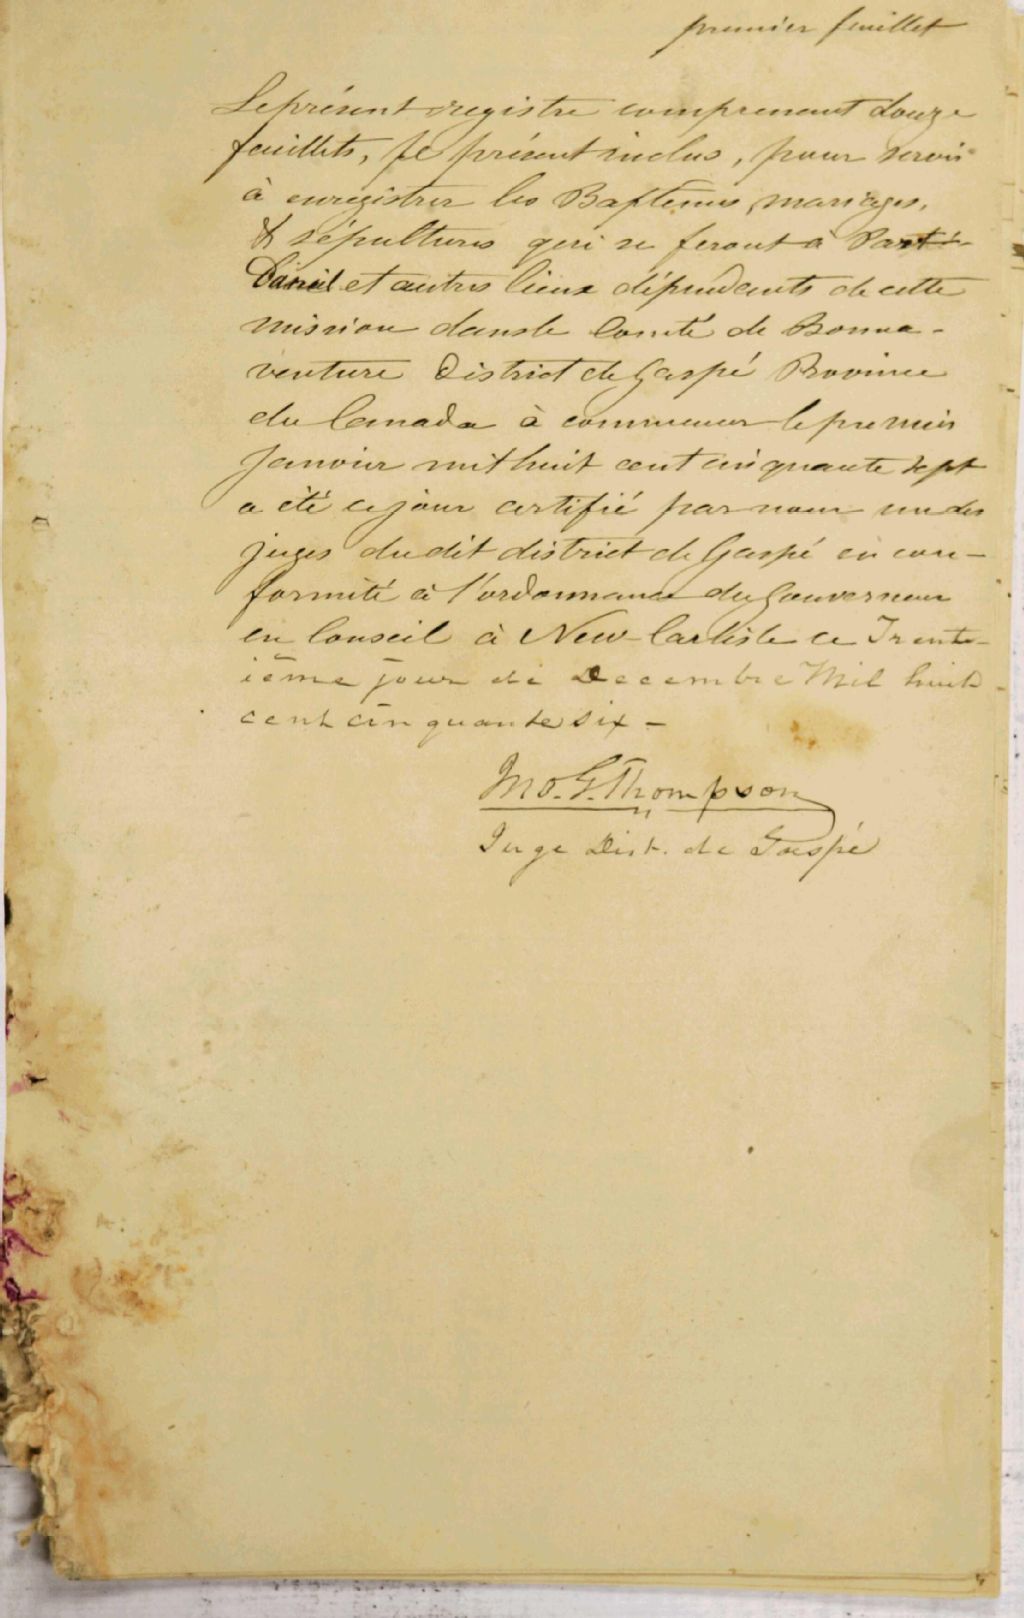 premier feuillet
Le présent registre comprenant douze
feuillets, le présent inclus, pour servir
à enregistrer les Baptemes, mariages,
& sépultures qui se feront à Port-
Daniel et autres lieux dépendants de cette
mission dans le Comté de Bonna-
venture District de Gaspé Province
du Canada à commencer le premier
Janvier mil huit cent cinquante sept
a été ce jour certifié par nous un des
juges du dit district de Gaspé en con-
formité à l'ordonnance du Gouverneur
en Conseil à New-Carlisle ce Trent-
ième jour de Decembre Mil huit
cent cinquante six -
Jno. G. Thompson
Juge Dist. de Gaspé